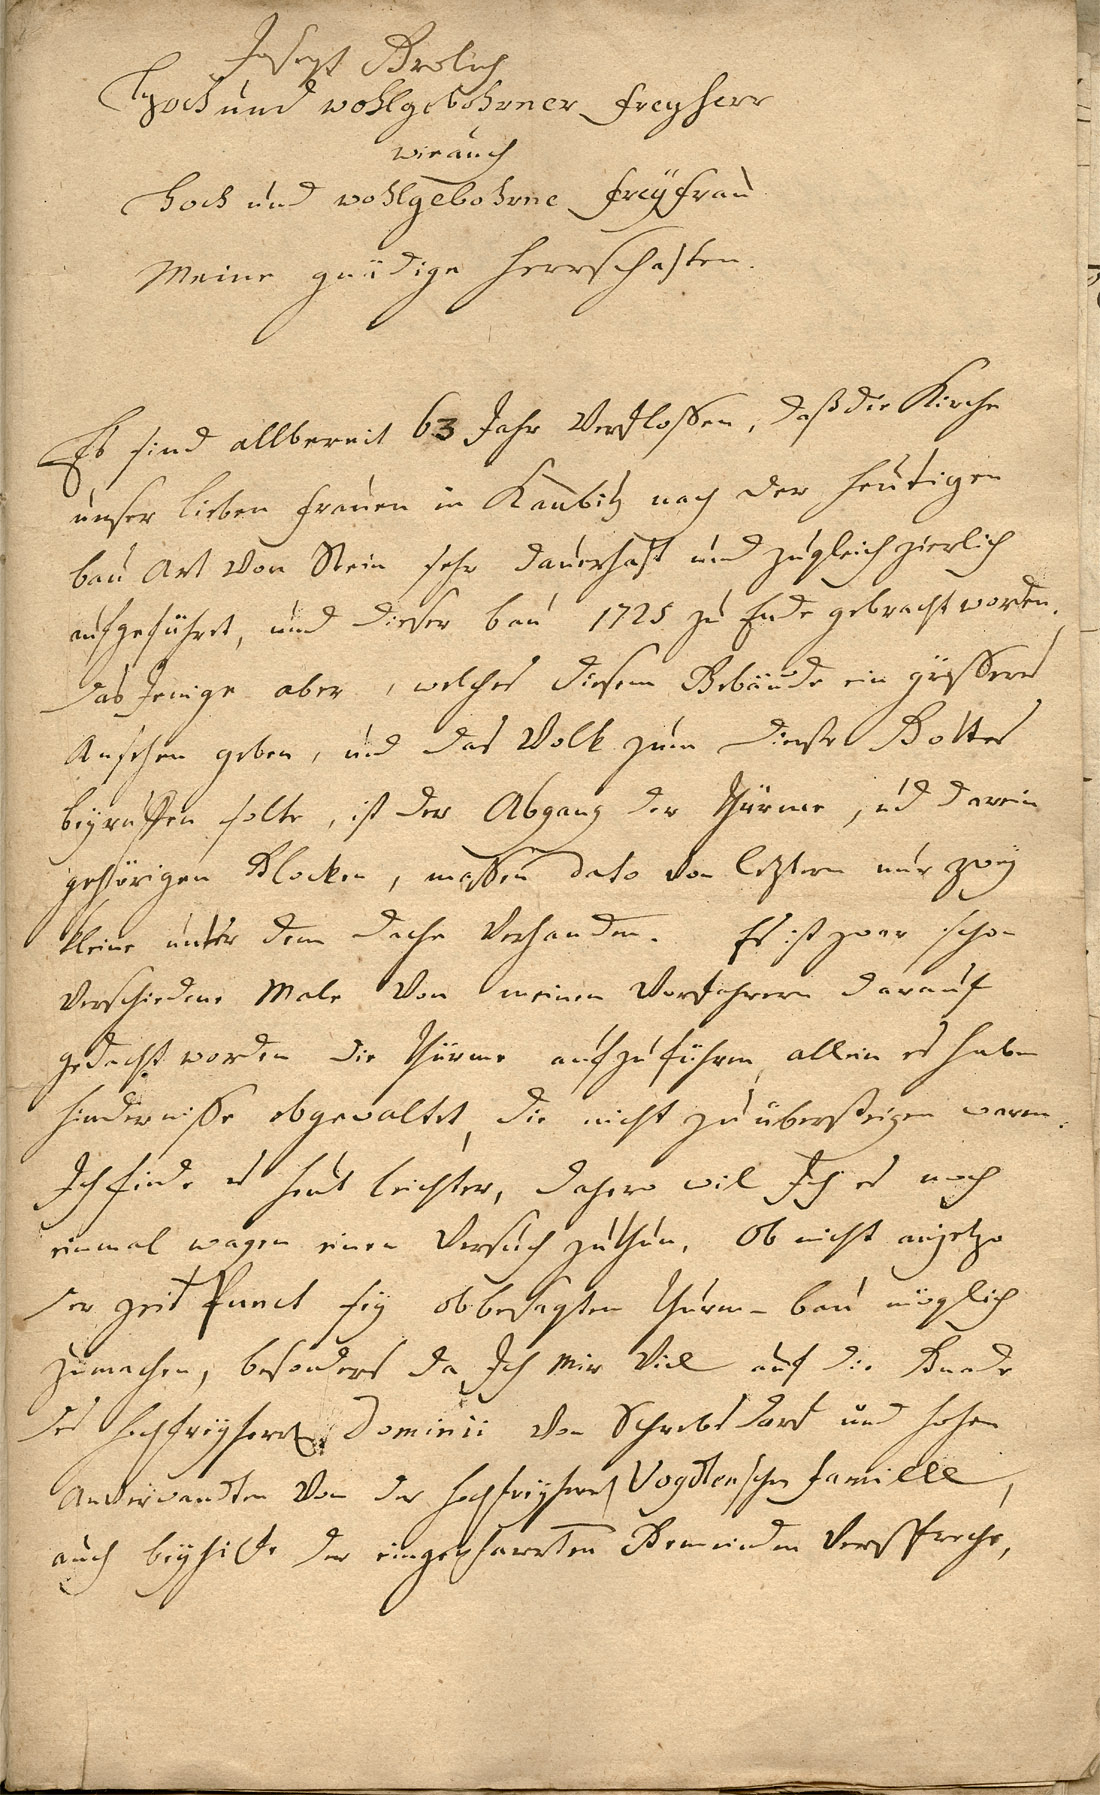 Joseph Brolich
Hoch und wohlgebohrner Freyherr
wie auch
Hoch und wohlgebohrne Freÿfrau
Meine gnädige Herrschaften.
Es sind allbereit 63 Jahr Verflossen, daß die Kirche
unser lieben Frauen in Kaubitz nach der heutigen
bau Art Von Stein sehr dauerhaft und zugleich zierlich
aufgeführet, und dieser bau 1725 zu Ende gebracht worden.
das Jenige aber, welches diesem Gebäude ein grössers
Ansehen geben, und das Volk zum Dienste Gottes
beÿruffen solte, ist der Abgang der Thürme, ud darein
gehörigen Glocken, massen dato Von leztern nur zweÿ
kleine unter dem dache Verhanden. Es ist zwar schon
Verschiedene Male Von meinen Vorfahrern darauf
gedacht worden die Thürme aufzuführen, allein es haben
Hindernisse obgewaltet, die nicht zu übersteigen waren.
Ich finde es heut leichter, dahero wil Ich es noch
einmal wagen einen Versuch zuthun, Ob nicht anjetzo
der Zeit Punct seÿ obbesagten Thurm-bau möglich
zumachen, besonders da Ich Mir Viel auf die Gnade
des hochfreÿherrl Dominii Von Schrebsdorf und hohen
Anverwandten Von der hochfreÿherrl Vogtenschen Familie,
auch beÿhilfe der eingepfarrten Gemeinden Verspreche,